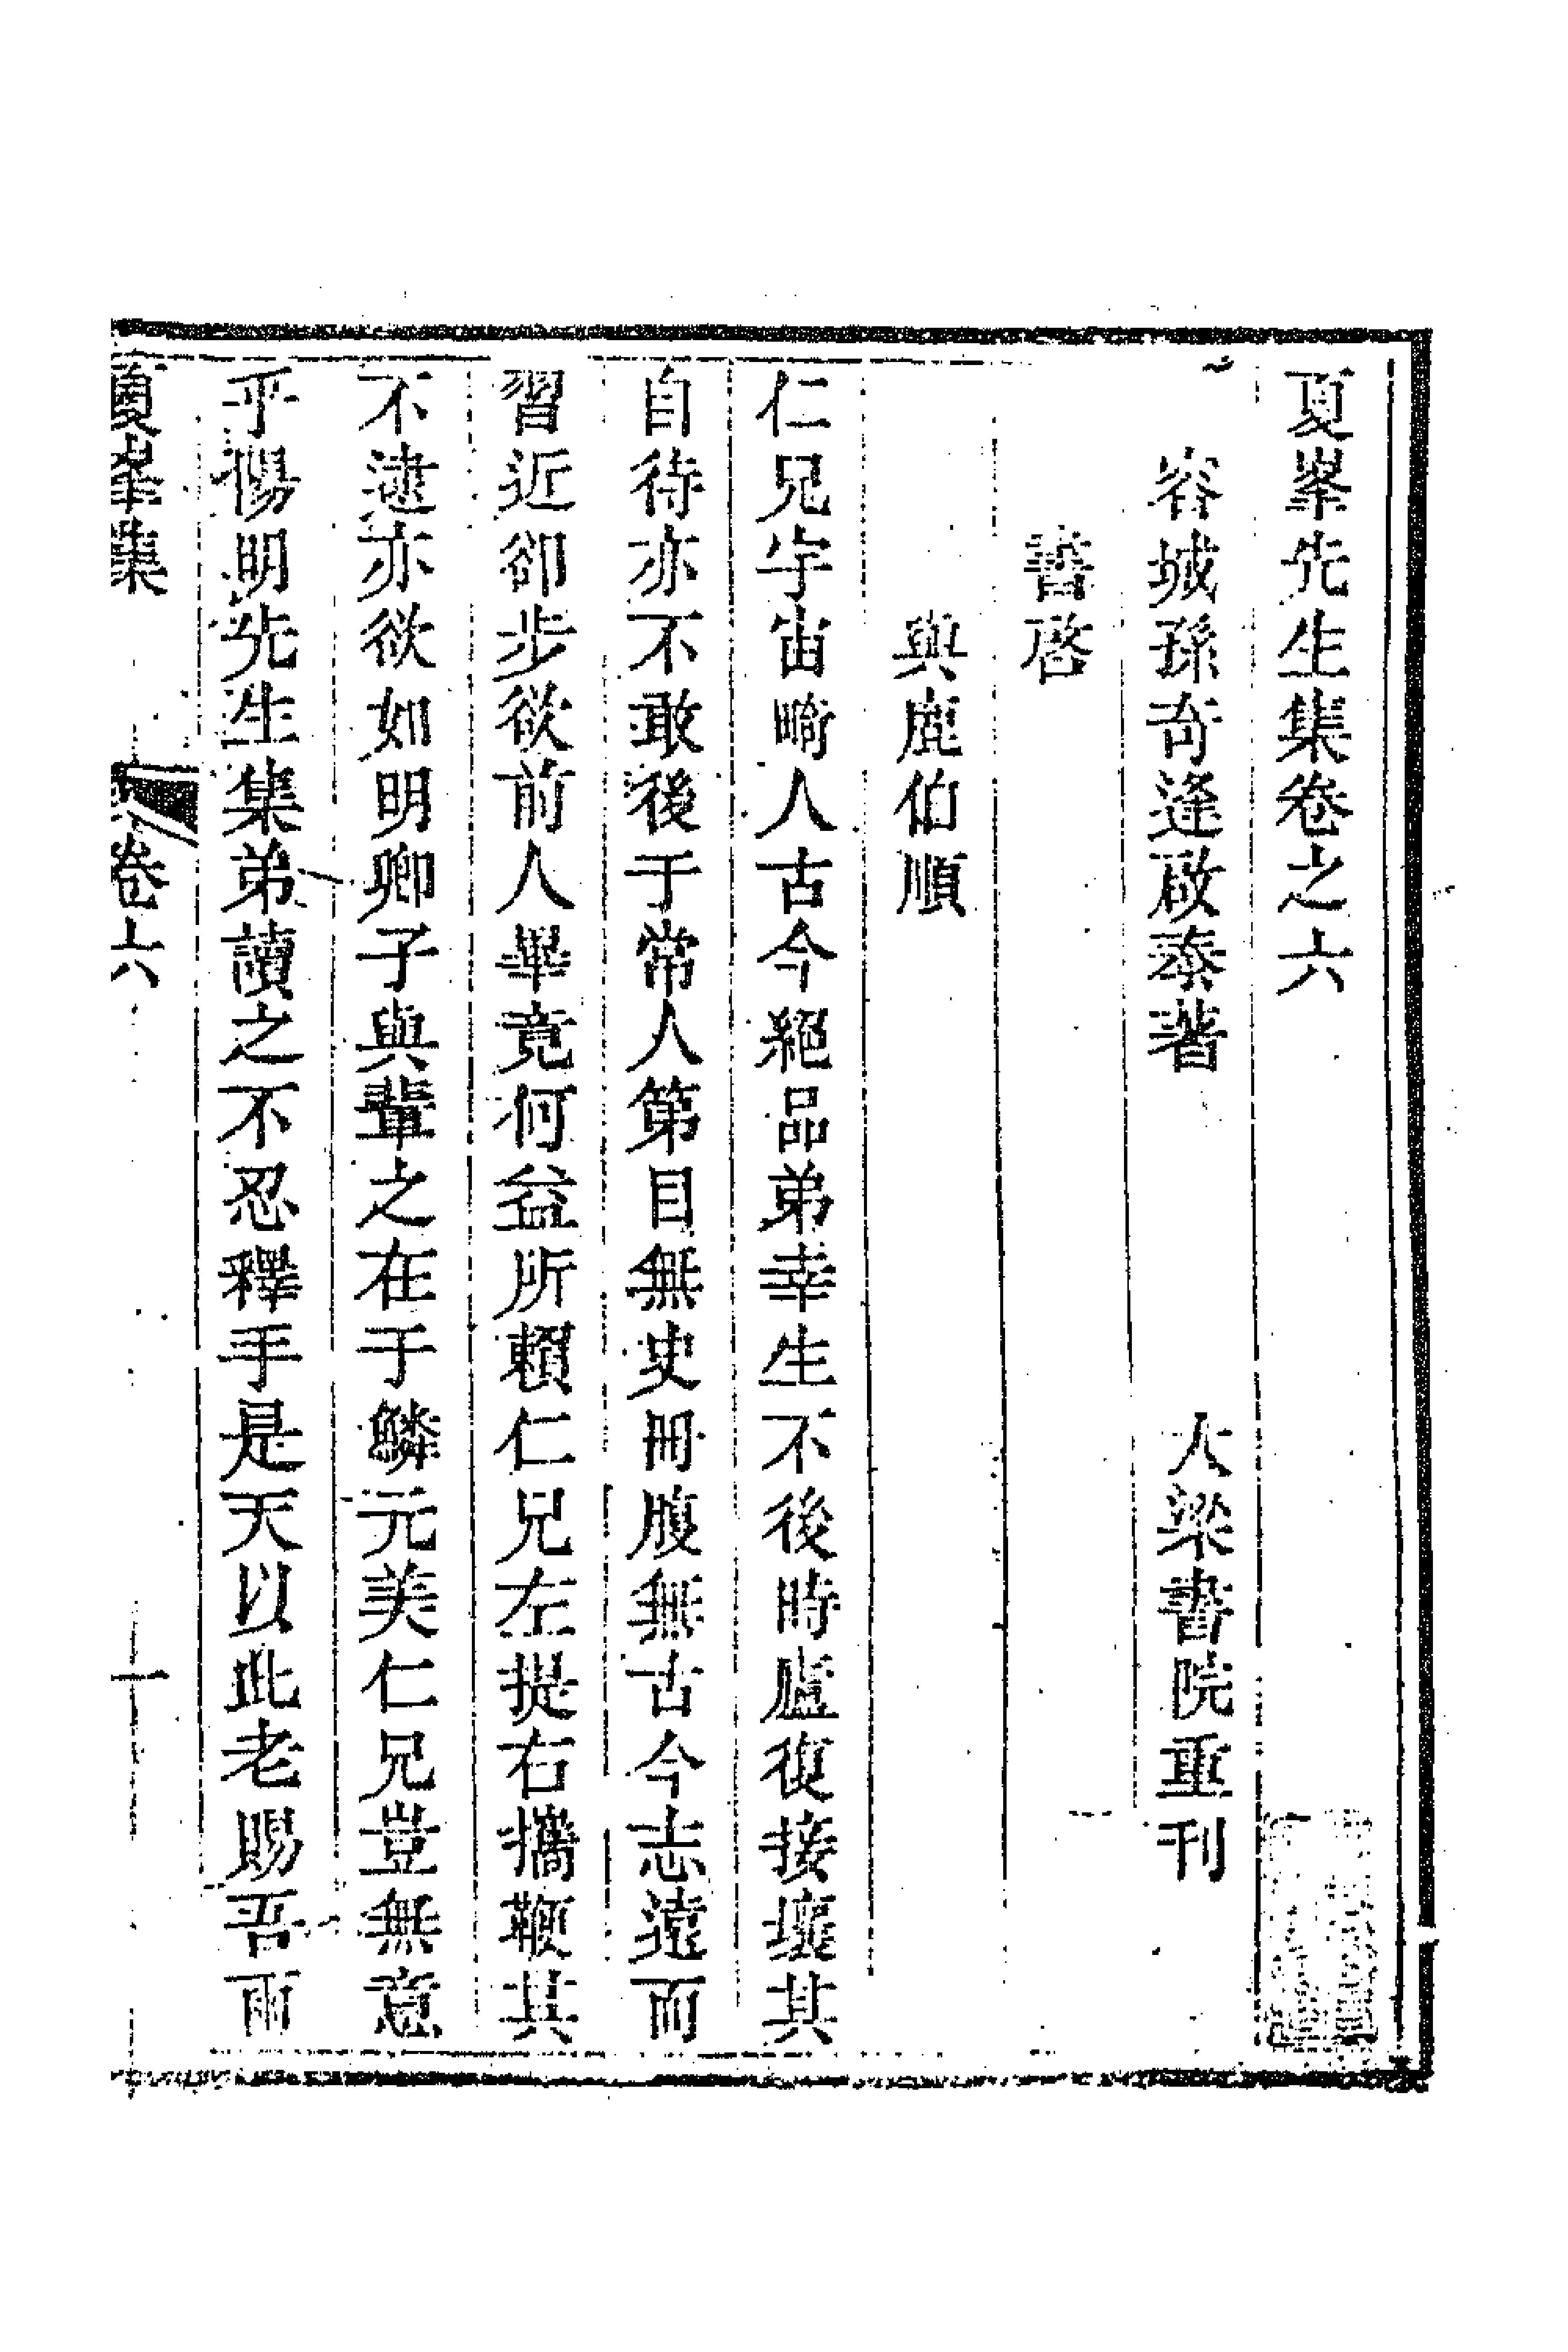 夏峯先生集卷之六
容城孫奇逢啟泰著 大梁書院重刊
書啓
與鹿伯順
仁兄宇宙畸人古今絕品弟幸生不後時廬復接壤其
自待亦不敢後于常人第目無史冊腹無古今志遠而
習近卻步欲前人畢竟何益所賴仁兄左提右攜鞭其
不逮亦欲如明卿子與輩之在于鱗元美仁兄豈無意
乎陽明先生集弟讀之不忍釋手是天以此老賜吾兩
夏峯集 卷六 一